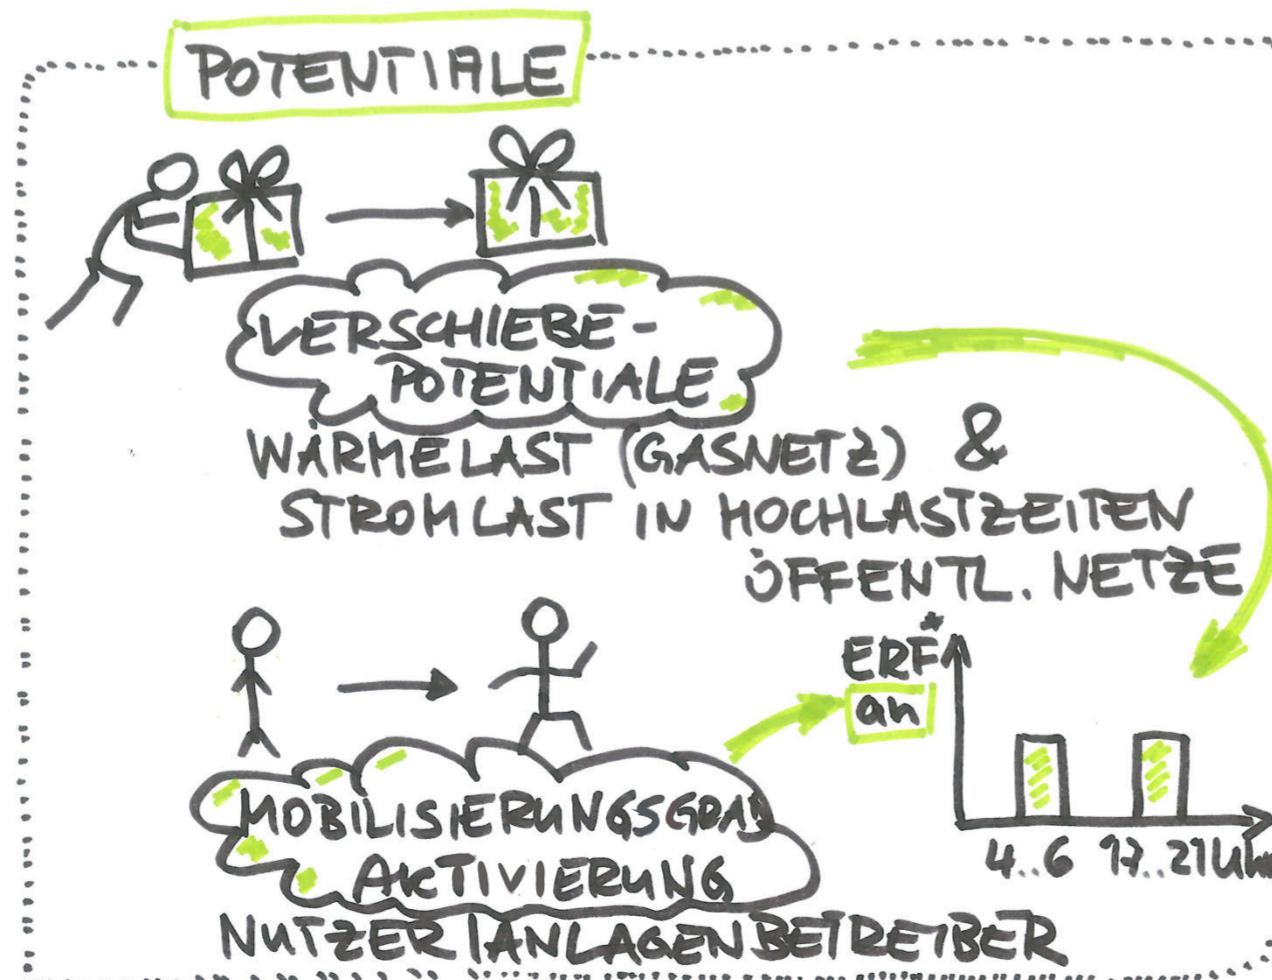 POTENTIALE
VERSCHIEBE-
POTENTIALE
WÄRMELAST (GASNETZ) &
STROMLAST IN HOCHLASTZEITEN
ÖFFENTL. NETZE
ERF*
an
4..6 17..21 Uhr
MOBILISIERUNGSGRAD
AKTIVIERUNG
NUTZER | ANLAGENBETREIBER